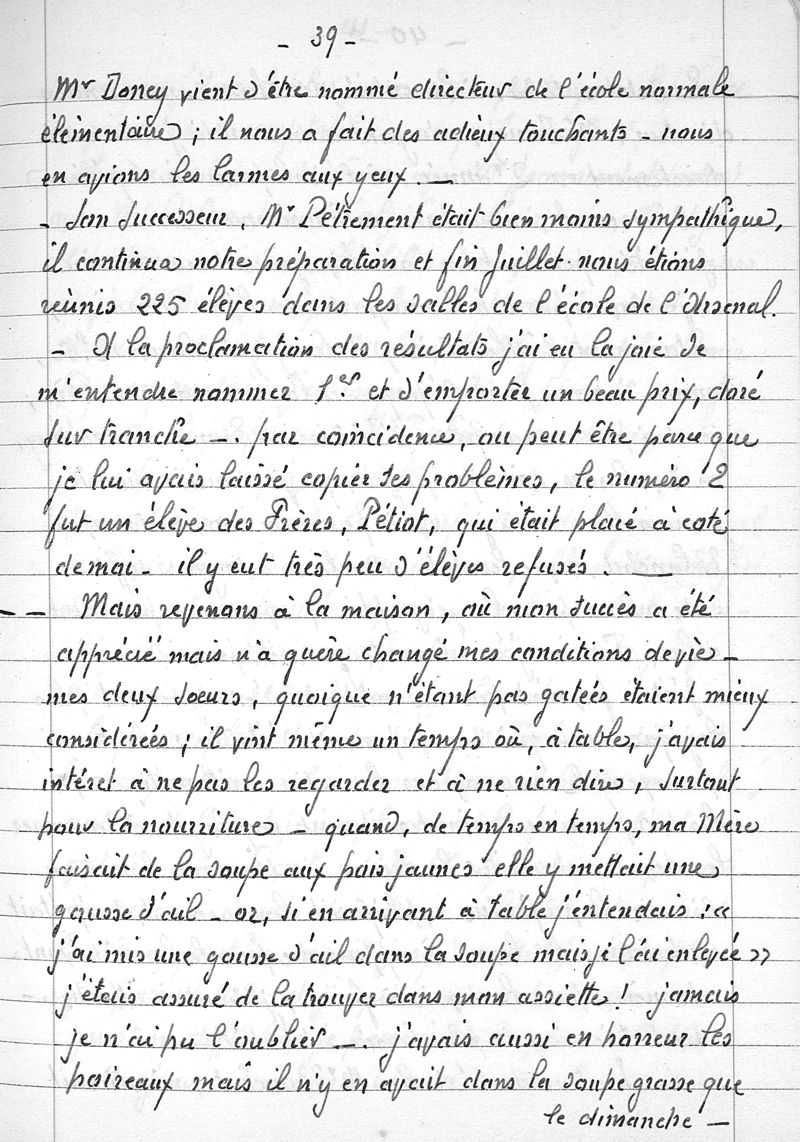 - 39 -
Mr Doney vient d'être nommé directeur de l'école normale
élémentaire ; il nous a fait des adieux touchants - nous
en avions les larmes aux yeux. —
- Son Successeur, Mr Pétrement était bien moins sympathique,
il continua notre préparation et fin Juillet nous étions
réunis 225 élèves dans les salles de l'école de l'Arsenal.
- A la proclamation des résultats j'ai eu la joie de
m'entendre nommer 1er et d'emporter un beau prix, doré
sur tranche -. par coïncidence, ou peut être parce que
je lui avais laissé copier ses problèmes, le numéro 2
fut un élève des Frères, Pétiot, qui était placé à coté
de moi - il y eut très peu d'élèves refusés. —
- - Mais revenons à la maison, où mon succès a été
apprécié mais n'a guère changé mes conditions de vie -
mes deux soeurs, quoique n'étant pas gatées étaient mieux
considérées ; il vint même un temps où, à table, j'avais
intéret à ne pas les regarder et à ne rien dire, surtout
pour la nourriture - quand, de temps en temps, ma Mère
faisait de la soupe aux pois jaunes elle y mettait une
gousse d'ail - or, si en arrivant à table j'entendais : «
j'ai mis une gousse d'ail dans la soupe mais je l'ai enlevée »
j'étais assuré de la trouver dans mon assiette ! jamais
je n'ai pu l'oublier -. j'avais aussi en horreur les
poireaux mais il n'y en avait dans la soupe grasse que
le dimanche -